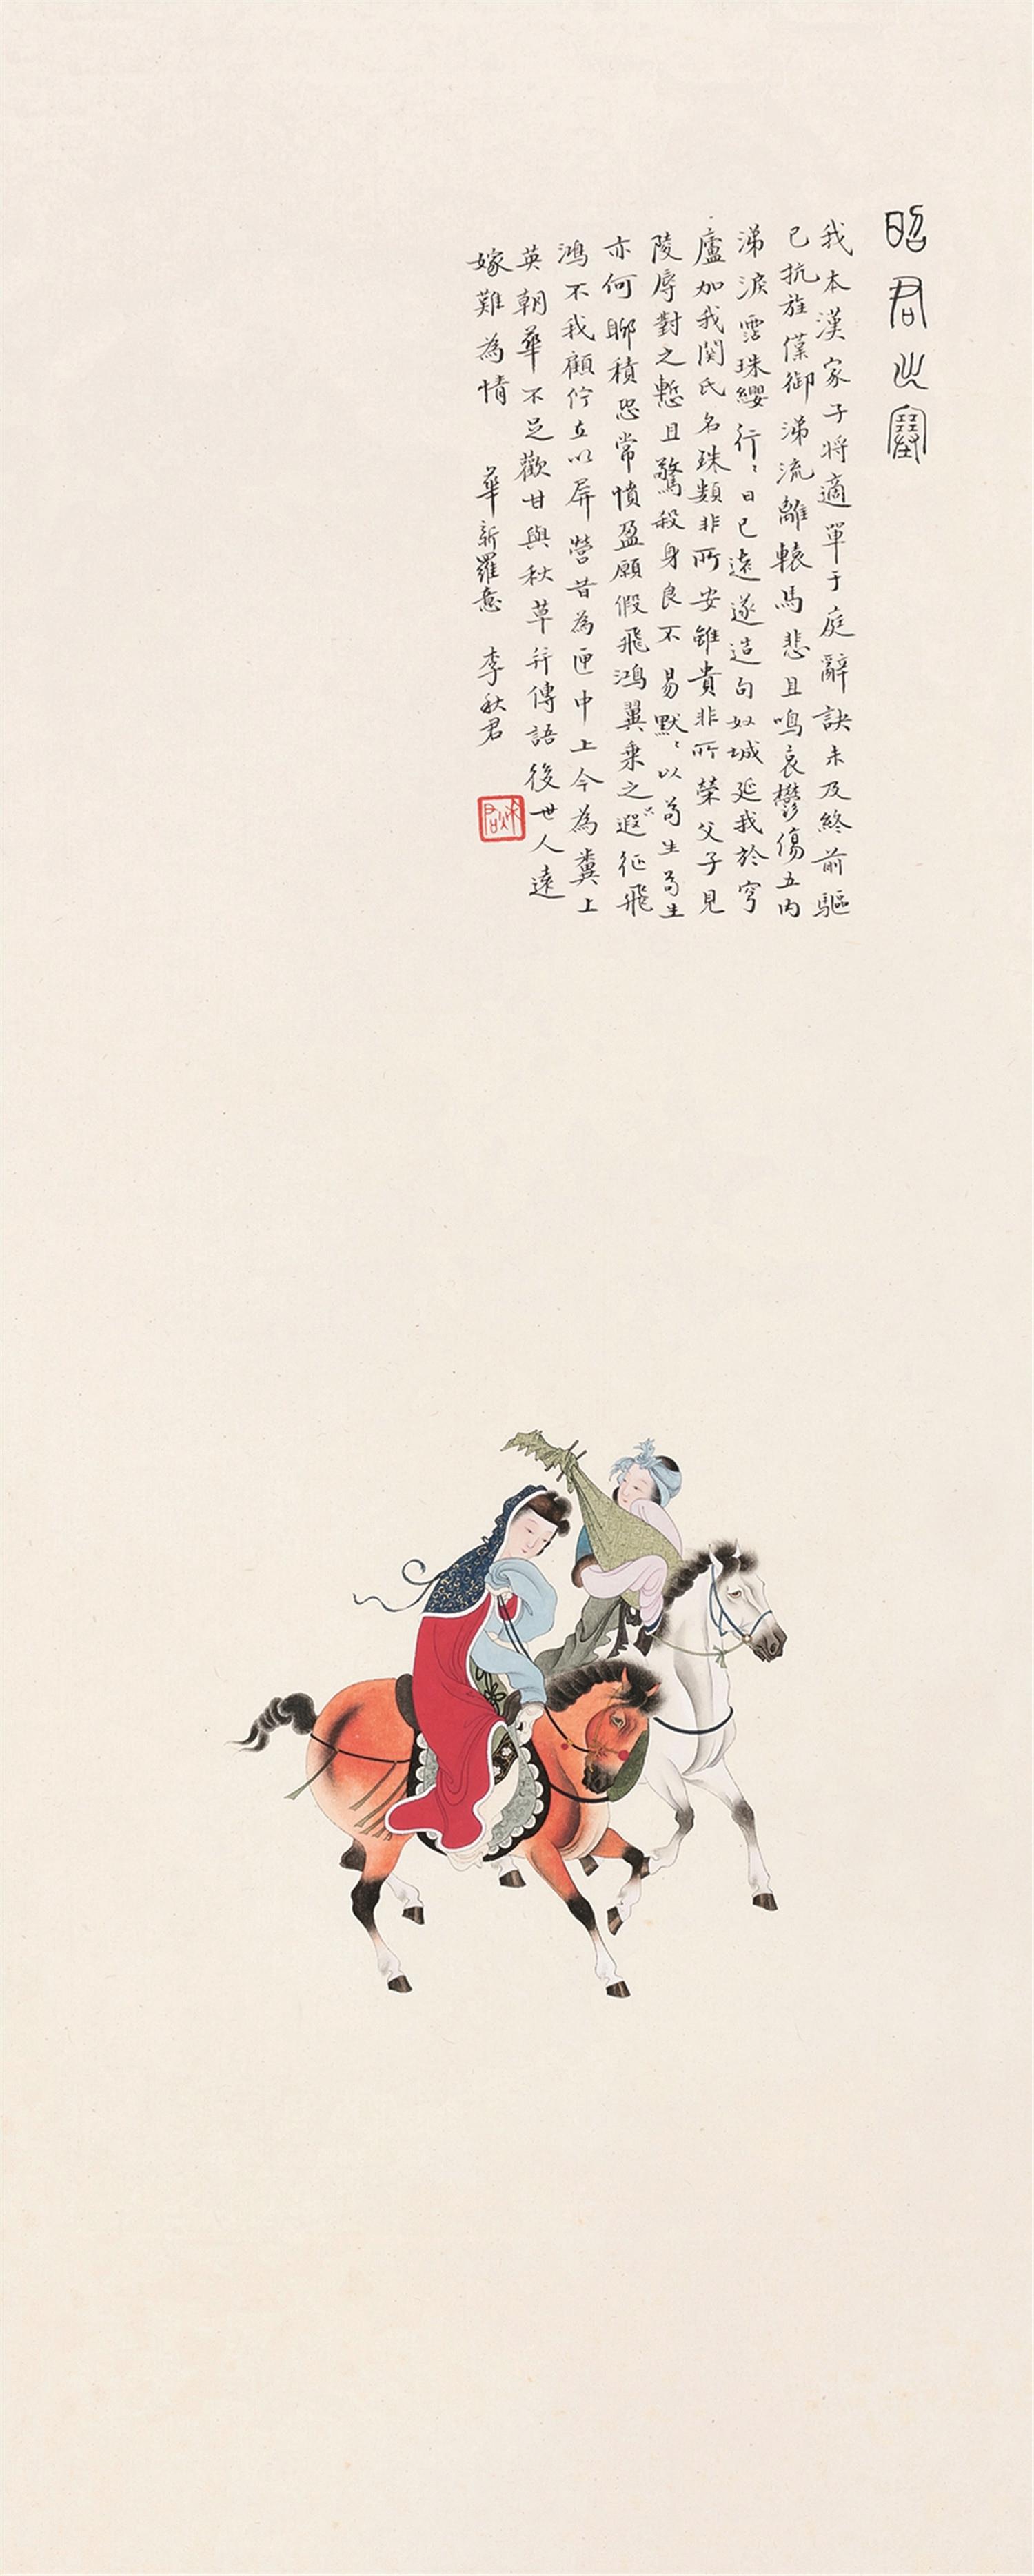 昭君出塞
我本漢家子将適單于庭辭訣未及終前驅
已抗旌僕御涕流離轅馬悲且鳴哀鬱傷五内
涕淚霑珠纓行〻日已遠遂造匈奴城延我於穹
廬加我閼氏名珠類非所安雖貴非所榮父子見
陵辱對之慙且驚殺身良不易默〻以苟生苟生
亦何聊積恐常憤盈願假飛鴻翼乘之遐征飛
鴻不我顧佇立以屏營昔為匣中上今為糞上
英朝華不足歡甘與秋草并傳語後世人遠
嫁難為情 華新羅意 李秋君
秋君